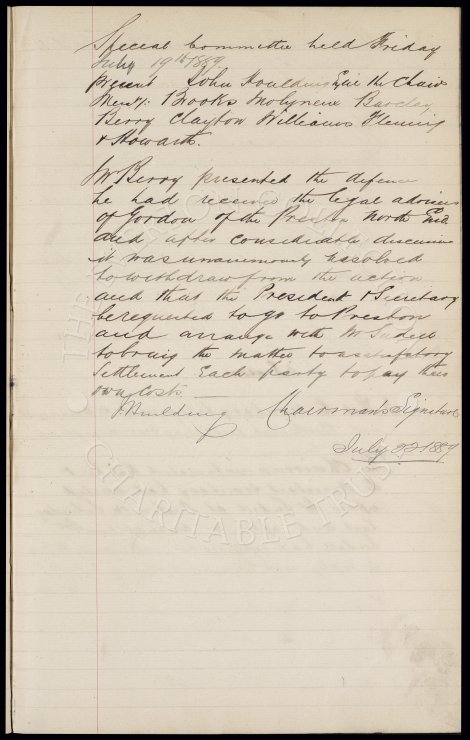 Special Committee held Friday
July 19th 1889
Present John Houlding Esq in the Chair
Messrs: Brooks Molyneux Barclay
Berry Clayton Williams Fleming
& Howarth.
Mr Berry presented the defence
he had received the legal advisers
of Gordon of the Preston North End
and after considerable discussion
it was unanimously resolved
to withdraw from the action
and that the President & Secretary
be requested to go to Preston
and arrange with Mr Sudell
to bring the matter to a satisfactory
Settlement Each party to pay their
own costs
J Houlding Chairman's Signature
July 22 1889
CHARITABLE TRUST